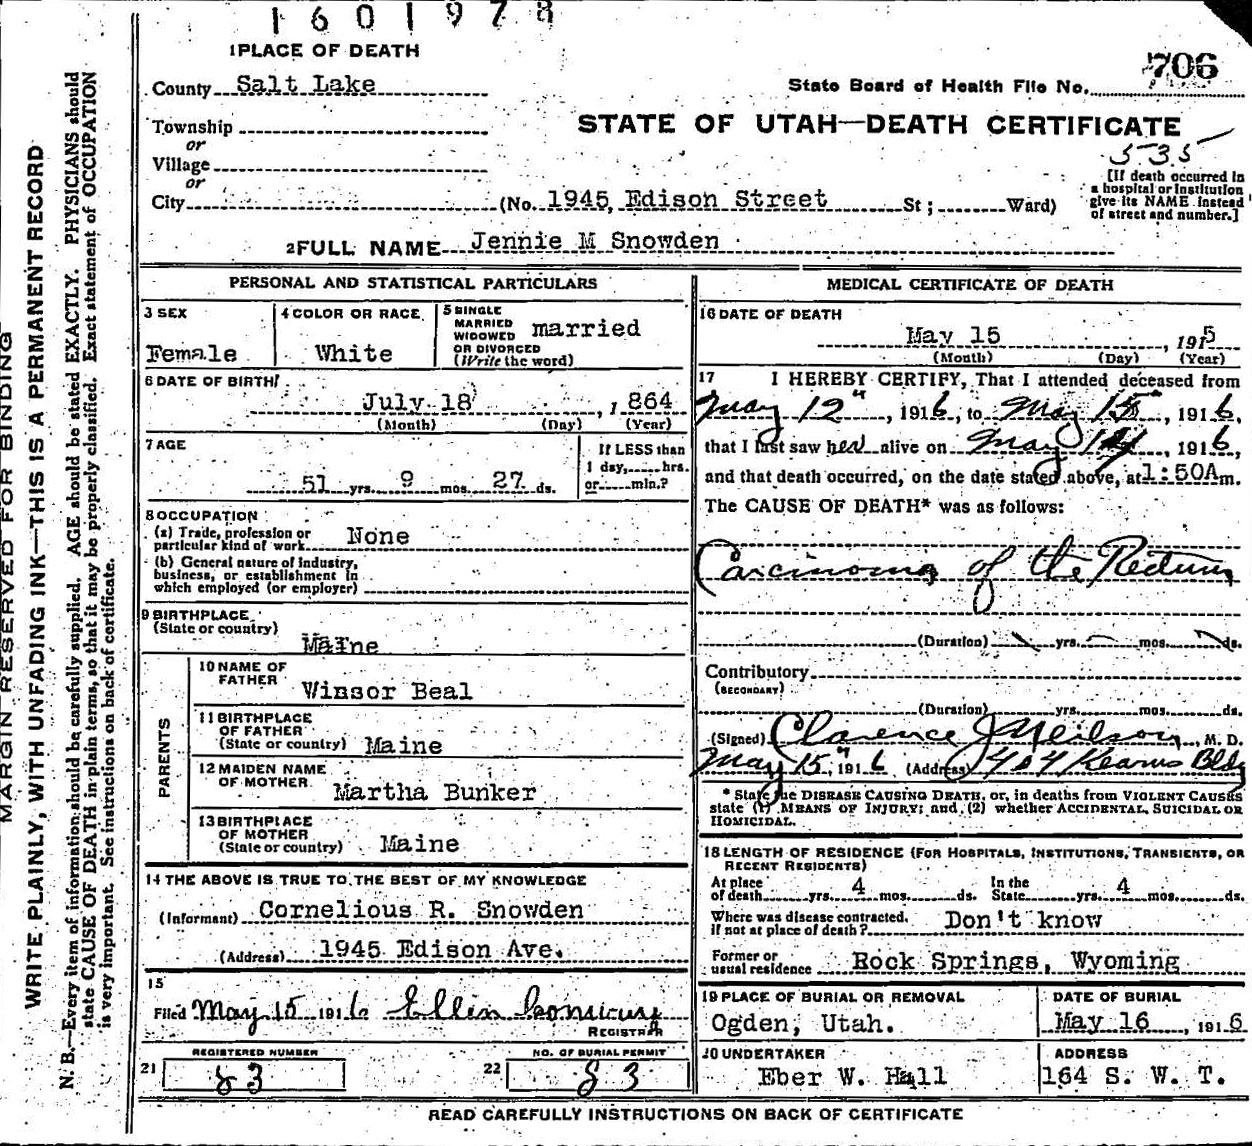 1601978
1 PLACE OF DEATH
County Salt Lake
State Board of Health File No. 706
Township
or
Village
or
STATE OF UTAH—DEATH CERTIFICATE
535
[If death occurred in
a hospital or institution
give its NAME instead
of street and number.]
City (No. 1945, Edison Street St; Ward)
2 FULL NAME Jennie M Snowden
PERSONAL AND STATISTICAL PARTICULARS
3 SEX
Female
4 COLOR OR RACE
White
5 SINGLE
MARRIED
WIDOWED
OR DIVORCED
(Write the word)
married
6 DATE OF BIRTH
July 18, 1864
(Month) (Day) (Year)
7 AGE
51 yrs. 9 mos. 27 ds.
If LESS than
1 day, hrs.
or min.?
8 OCCUPATION
(a) Trade, profession or
particular kind of work None
(b) General nature of industry,
business, or establishment in
which employed (or employer)
9 BIRTHPLACE
(State or country)
Maine
PARENTS
10 NAME OF
FATHER
Winsor Beal
11 BIRTHPLACE
OF FATHER
(State or country) Maine
12 MAIDEN NAME
OF MOTHER
Martha Bunker
13 BIRTHPLACE
OF MOTHER
(State or country) Maine
14 THE ABOVE IS TRUE TO THE BEST OF MY KNOWLEDGE
(Informant) Cornelious R. Snowden
(Address) 1945 Edison Ave.
15
Filed May 15 1916
REGISTRAR
REGISTERED NUMBER
21 83
NO. OF BURIAL PERMIT
22 83
MEDICAL CERTIFICATE OF DEATH
16 DATE OF DEATH
May 15, 1915
(Month) (Day) (Year)
17 I HEREBY CERTIFY, That I attended deceased from
May 12", 1916, to May 15, 1916,
that I last saw her alive on May 14, 1916,
and that death occurred, on the date stated above, at 1:50A m.
The CAUSE OF DEATH* was as follows:
Carcinoma of the Rectum
(Duration) yrs. mos. ds.
Contributory
(SECONDARY)
(Duration) yrs. mos. ds.
(Signed) Clarence J Neilson, M. D.
May 15", 1916 (Address) 404 Kearns Bldg
* State the DISEASE CAUSING DEATH, or, in deaths from VIOLENT CAUSES
state (1) MEANS OF INJURY; and (2) whether ACCIDENTAL, SUICIDAL OR
HOMICIDAL.
18 LENGTH OF RESIDENCE (FOR HOSPITALS, INSTITUTIONS, TRANSIENTS, OR
RECENT RESIDENTS)
At place
of death yrs. 4 mos. ds.
In the
State yrs. 4 mos. ds.
Where was disease contracted.
if not at place of death? Don't know
Former or
usual residence Rock Springs, Wyoming
19 PLACE OF BURIAL OR REMOVAL
Ogden, Utah.
DATE OF BURIAL
May 16, 1916
20 UNDERTAKER
Eber W. Hall
ADDRESS
164 S. W. T.
READ CAREFULLY INSTRUCTIONS ON BACK OF CERTIFICATE
MARGIN RESERVED FOR BINDING
WRITE PLAINLY, WITH UNFADING INK—THIS IS A PERMANENT RECORD
N. B.—Every item of information should be carefully supplied. AGE should be stated EXACTLY. PHYSICIANS should
state CAUSE OF DEATH in plain terms, so that it may be properly classified. Exact statement of OCCUPATION
is very important. See instructions on back of certificate.